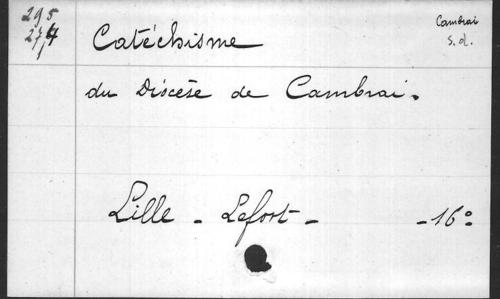 295
274
1
Cambrai
s.d.
Catéchisme
du Diocèse de Cambrai.
Lille - Lefort - - 16°